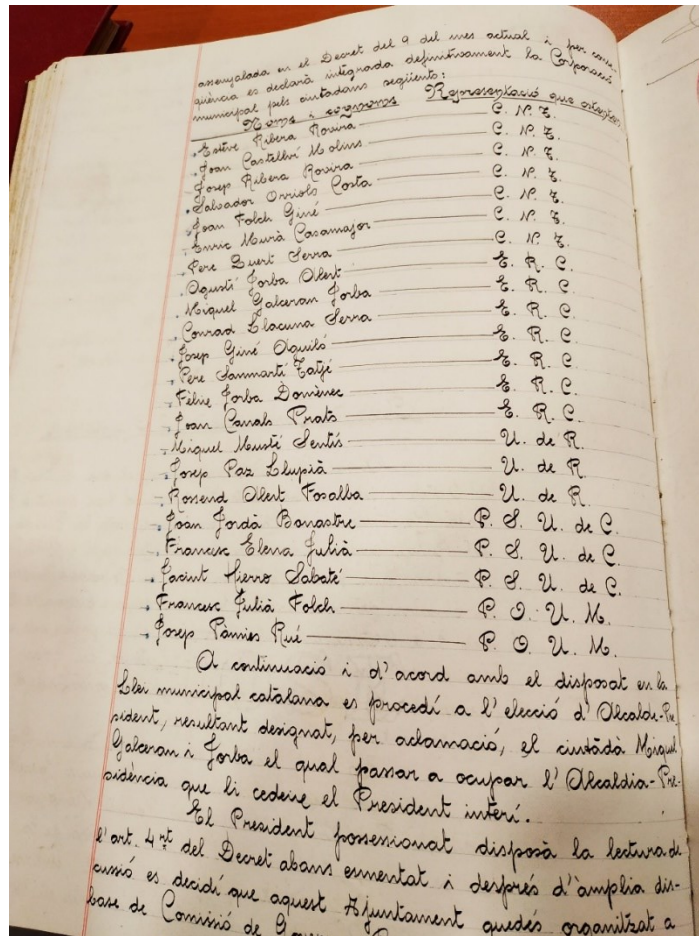 assenyalada en el Decret del 9 del mes actual i per conse-
qüència es declarà integrada definitivament la Corporació
municipal pels ciutadans següents:
Noms i cognoms Representació que ostenten
Esteve Ribera Rovira C. N. T.
Joan Castellví Molins C. N. T.
Josep Ribera Rovira C. N. T.
Salvador Orriols Costa C. N. T.
Joan Folch Giné C. N. T.
Enric Murà Casamajor C. N. T.
Pere Quert Serra C. N. T.
Agustí Jorba Albert E. R. C.
Miquel Galceran Jorba E. R. C.
Conrad Llacuna Serra E. R. C.
Josep Giné Aguiló E. R. C.
Pere Sanmartí Tatjé E. R. C.
Fèlix Jorba Domènec E. R. C.
Joan Canals Prats E. R. C.
Miquel Musté Sentís U. de R.
Josep Paz Llupià U. de R.
Rossend Albert Fosalba U. de R.
Joan Jordà Bonastre P. S. U. de C.
Francesc Elena Julià P. S. U. de C.
Jacint Hierro Sabaté P. S. U. de C.
Francesc Julià Folch P. O. U. M.
Josep Pàmies Rué P. O. U. M.
A continuació i d'acord amb el disposat en la
Llei municipal catalana es procedí a l'elecció d'Alcalde-Pre-
sident, resultant designat, per aclamació, el ciutàdà Miquel
Galceran i Jorba el qual passar a ocupar l'Alcaldia-Pre-
sidència que li cedeix el President interí.
El President possessionat disposà la lectura de
l'art. 4rt del Decret abans esmentat i després d'àmplia dis-
cussió es decidí que aquest Ajuntament quedés organitzat a
base de Comissió de